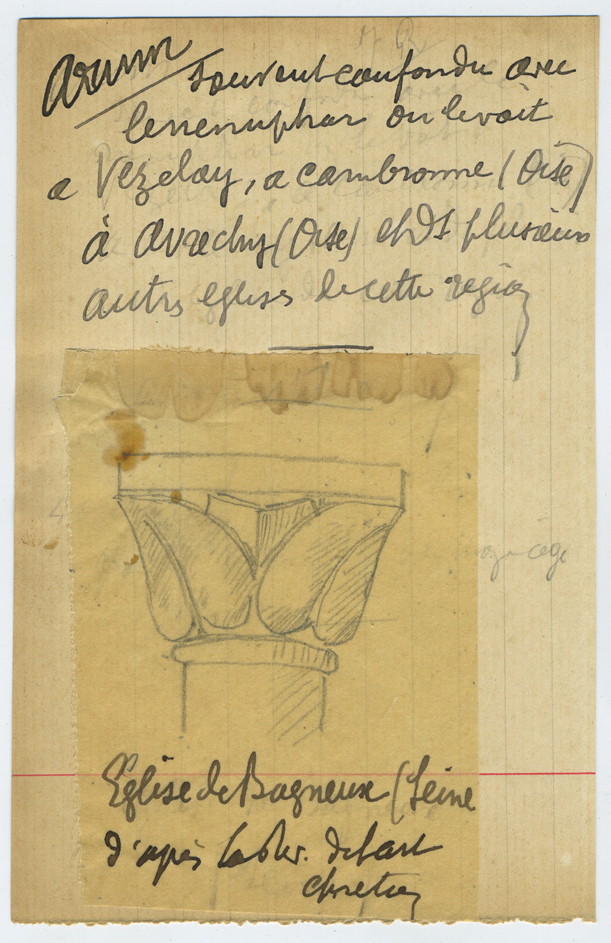 Arum souvent confondu avec
le nenuphar on le voit
a Vezelay, a cambronne (Oise)
à avrechy (Oise) et ds plusieurs
autres eglises de cette region
Eglise de Bagneux (Seine
d'après la Rev. de l'art
chretien